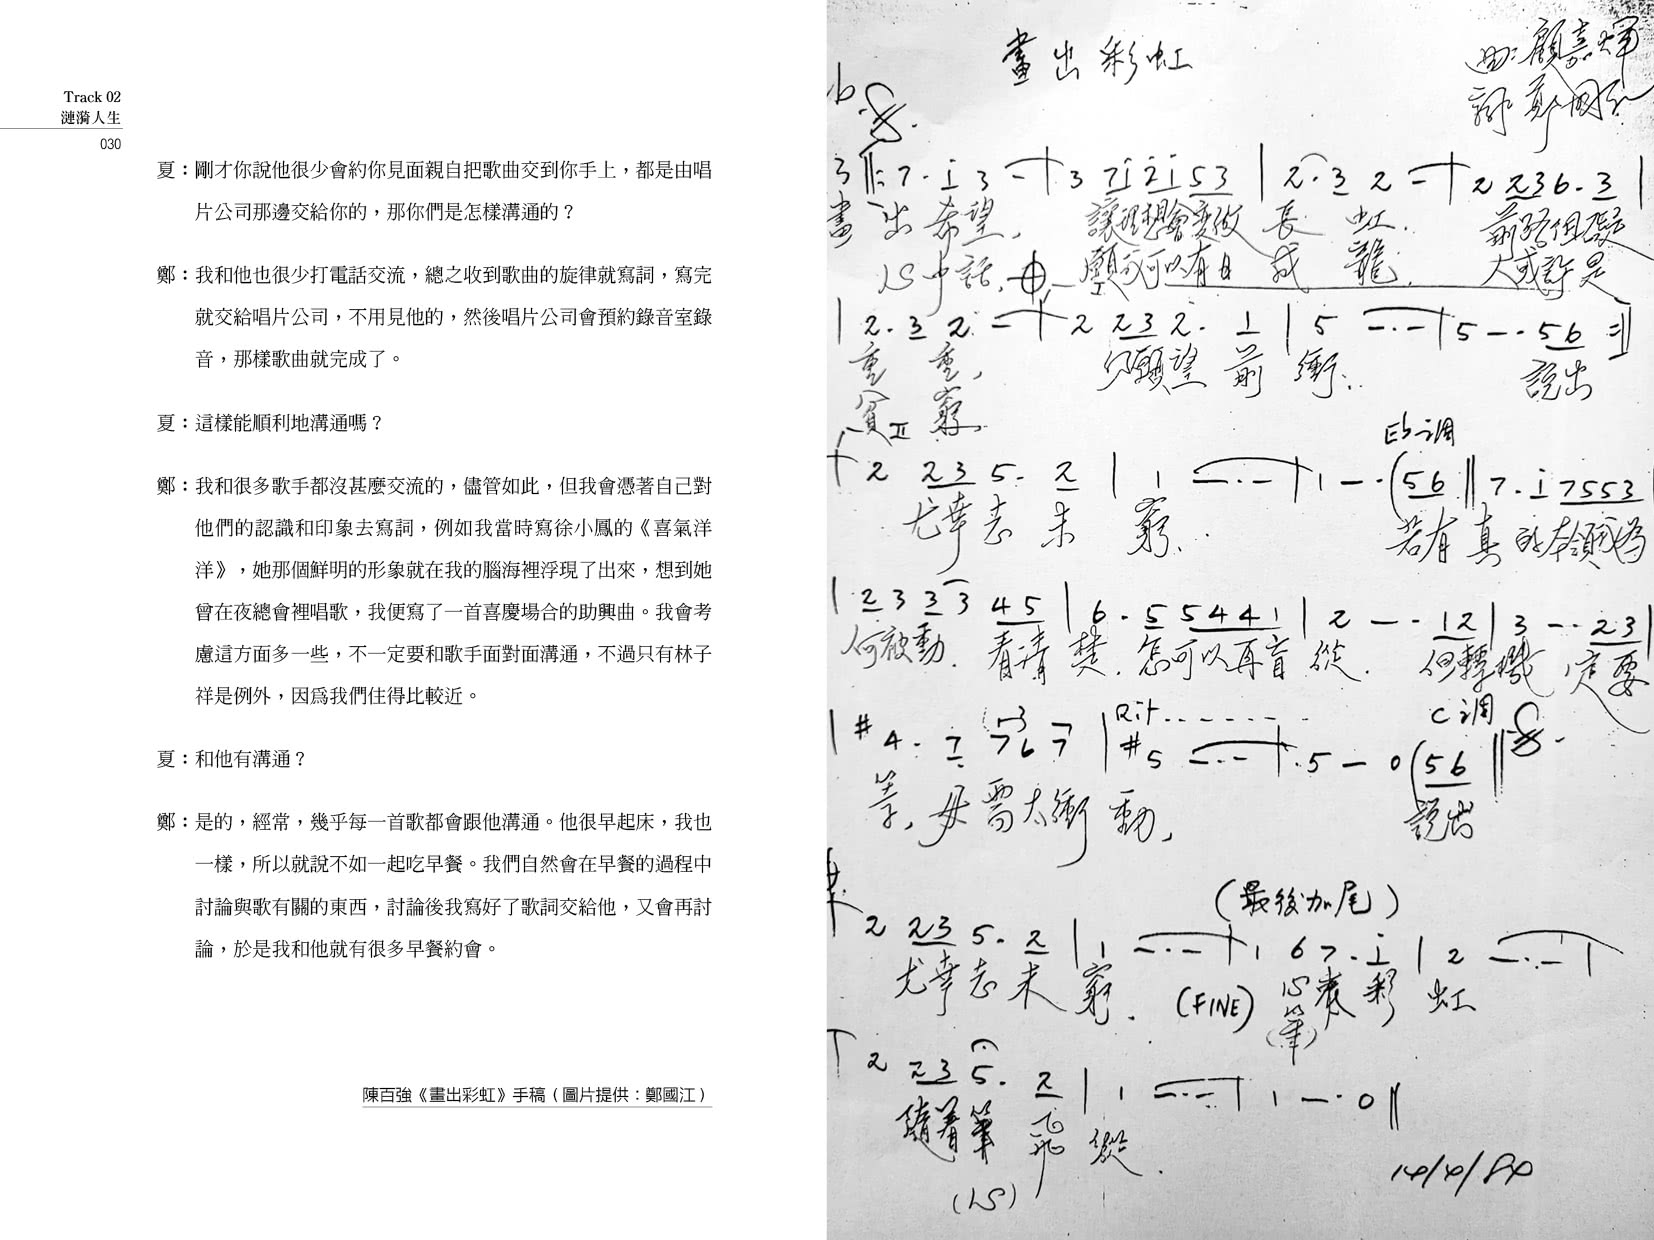 Track 02
漣漪人生
030
夏：剛才你說他很少會約你見面親自把歌曲交到你手上，都是由唱
片公司那邊交給你的，那你們是怎樣溝通的？
鄭：我和他也很少打電話交流，總之收到歌曲的旋律就寫詞，寫完
就交給唱片公司，不用見他的，然後唱片公司會預約錄音室錄
音，那樣歌曲就完成了。
夏：這樣能順利地溝通嗎？
鄭：我和很多歌手都沒甚麼交流的，儘管如此，但我會憑著自己對
他們的認識和印象去寫詞，例如我當時寫徐小鳳的《喜氣洋
洋》，她那個鮮明的形象就在我的腦海裡浮現了出來，想到她
曾在夜總會裡唱歌，我便寫了一首喜慶場合的助興曲。我會考
慮這方面多一些，不一定要和歌手面對面溝通，不過只有林子
祥是例外，因爲我們住得比較近。
夏：和他有溝通？
鄭：是的，經常，幾乎每一首歌都會跟他溝通。他很早起床，我也
一樣，所以就說不如一起吃早餐。我們自然會在早餐的過程中
討論與歌有關的東西，討論後我寫好了歌詞交給他，又會再討
論，於是我和他就有很多早餐約會。
陳百強《畫出彩虹》手稿（圖片提供：鄭國江）
畫出彩虹
曲：顧嘉煇
詞 鄭國江
3 7. i 3 – 3 7i2i53 2.3 2 – 2 236.3
畫 出希望， 讓理想會變做 長 虹． 前路但礙
心中話， 願 可以有日 成 龍． 人或許是
2.3 2 – 2 232. 1 5 –.– 5 –. 56
重 重， 只願望 前 衝． 說出
貧 窮，
Eb調
2 23 5. 2 1 –.– 1 –. (56 7. i7553
尤幸志 未 窮． 若有 真的本領為
2 3 3 3 45 6. 55441 2 –. 12 3 –. 23
何被動． 看清 楚． 怎可以再盲 從． 但轉機 定要
Rit......
C調
#4. 7 767 #5 –.– 5 – 0 (56
等，毋需太衝 動， 說出
(最後加尾)
2 23 5. 2 1 –.– 1 67. i 2 –.–
尤幸志未 窮． (FINE) 心裏彩 虹
(筆)
2 23 5. 2 1 –.– 1 –. 0
隨着筆 飛 縱．
(心)
14/4/84